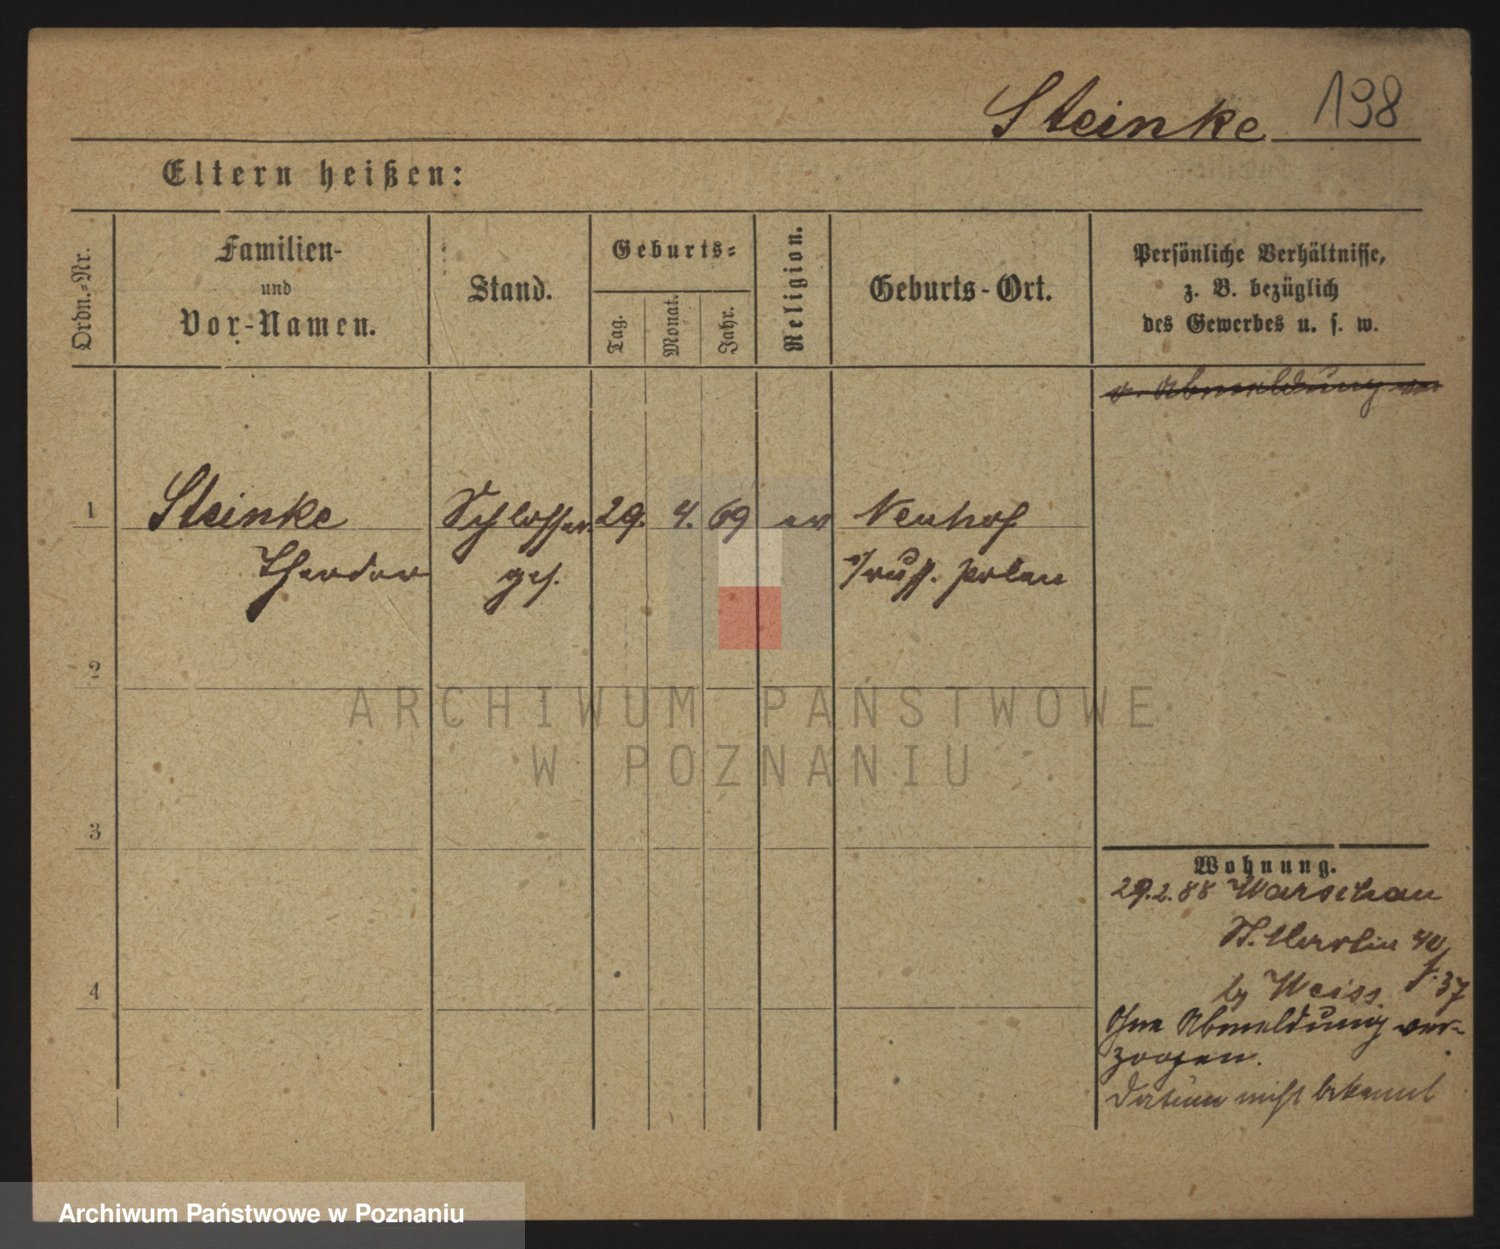 Steinke 198
Eltern heißen:
Ordn.-Nr.
Familien-
und
Vor-Namen.
Stand.
Geburts-
Tag.
Monat.
Jahr.
Religion.
Geburts-Ort.
Persönliche Verhältnisse,
z. B. bezüglich
des Gewerbes u. s. w.
o. Abmeldung ver
1 Steinke Schlosser 29. 4. 69 ev Neuhof
Theodor ges. i/russ. Polen
2
ARCHIWUM PAŃSTWOWE
W POZNANIU
3
Wohnung.
29.2.88 Warschau
St. Martin 40
f. 37
4
by Weiss.
Ohne Abmeldung ver-
zogen.
Datum nicht bekannt
Archiwum Państwowe w Poznaniu